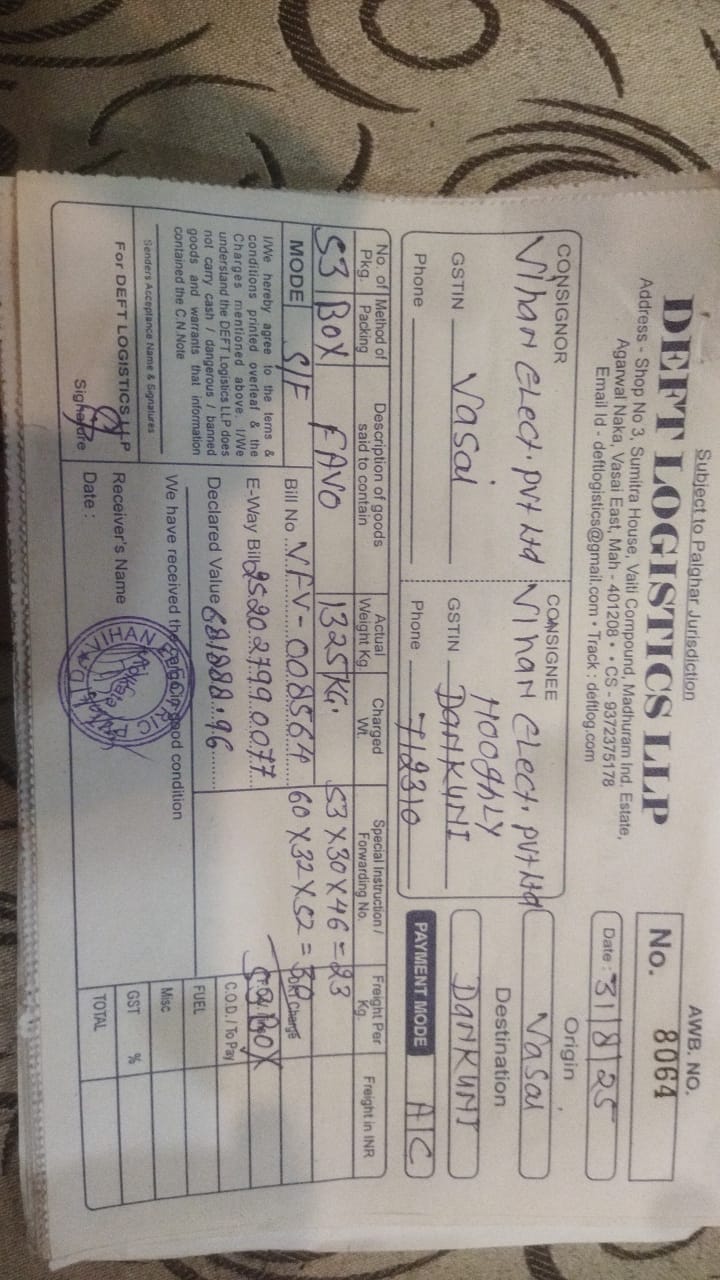 Subject to Palghar Jurisdiction
DEFT LOGISTICS LLP
Address - Shop No 3, Sumitra House, Vaiti Compound, Madhuram Ind. Estate,
Agarwal Naka, Vasai East, Mah - 401208 • • CS - 9372375178
Email Id - deftlogistics@gmail.com • Track : deftlog.com
AWB. NO.
No. 8064
Date : 31/8/25
CONSIGNOR
Vihan Elect. Pvt Ltd
Vasai
GSTIN
Phone
CONSIGNEE
Vihan Elect. Pvt Ltd
HOOGHLY
DANKUNI
GSTIN
712310
Phone
Origin
Vasai
Destination
DANKUNI
PAYMENT MODE A/C
No. of Pkg. Method of Packing Description of goods said to contain Actual Weight Kg. Charged Wt. Special Instruction / Forwarding No. Freight Per Kg. Freight in INR
53 BOX FAVO 1325 KG. 53 X 30 X 46 = 23
60 X 32 X 52 = 30
MODE S/F
Bill No. VFV-008564
E-Way Bill 252027990077
Declared Value 881888.96
I/We hereby agree to the tems &
conditions printed overleaf & the
Charges mentioned above. I/We
understand the DEFT Logistics LLP does
not carry cash / dangerous / banned
goods and warrants that information
contained the C.N Note
Senders Acceptance Name & Signatures
For DEFT LOGISTICS LLP
Signature
We have received the cargo in good condition
Receiver's Name
Date :
VIHAN
Dkt Charge
53 BOX
C.O.D. / To Pay
FUEL
Misc
GST %
TOTAL